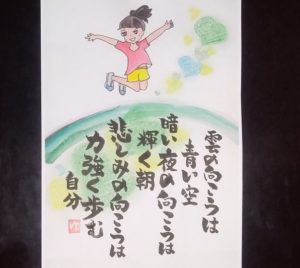 雲の向こうは
青い空
暗い夜の向こうは
輝く朝
悲しみの向こうは
力強く歩む
自分